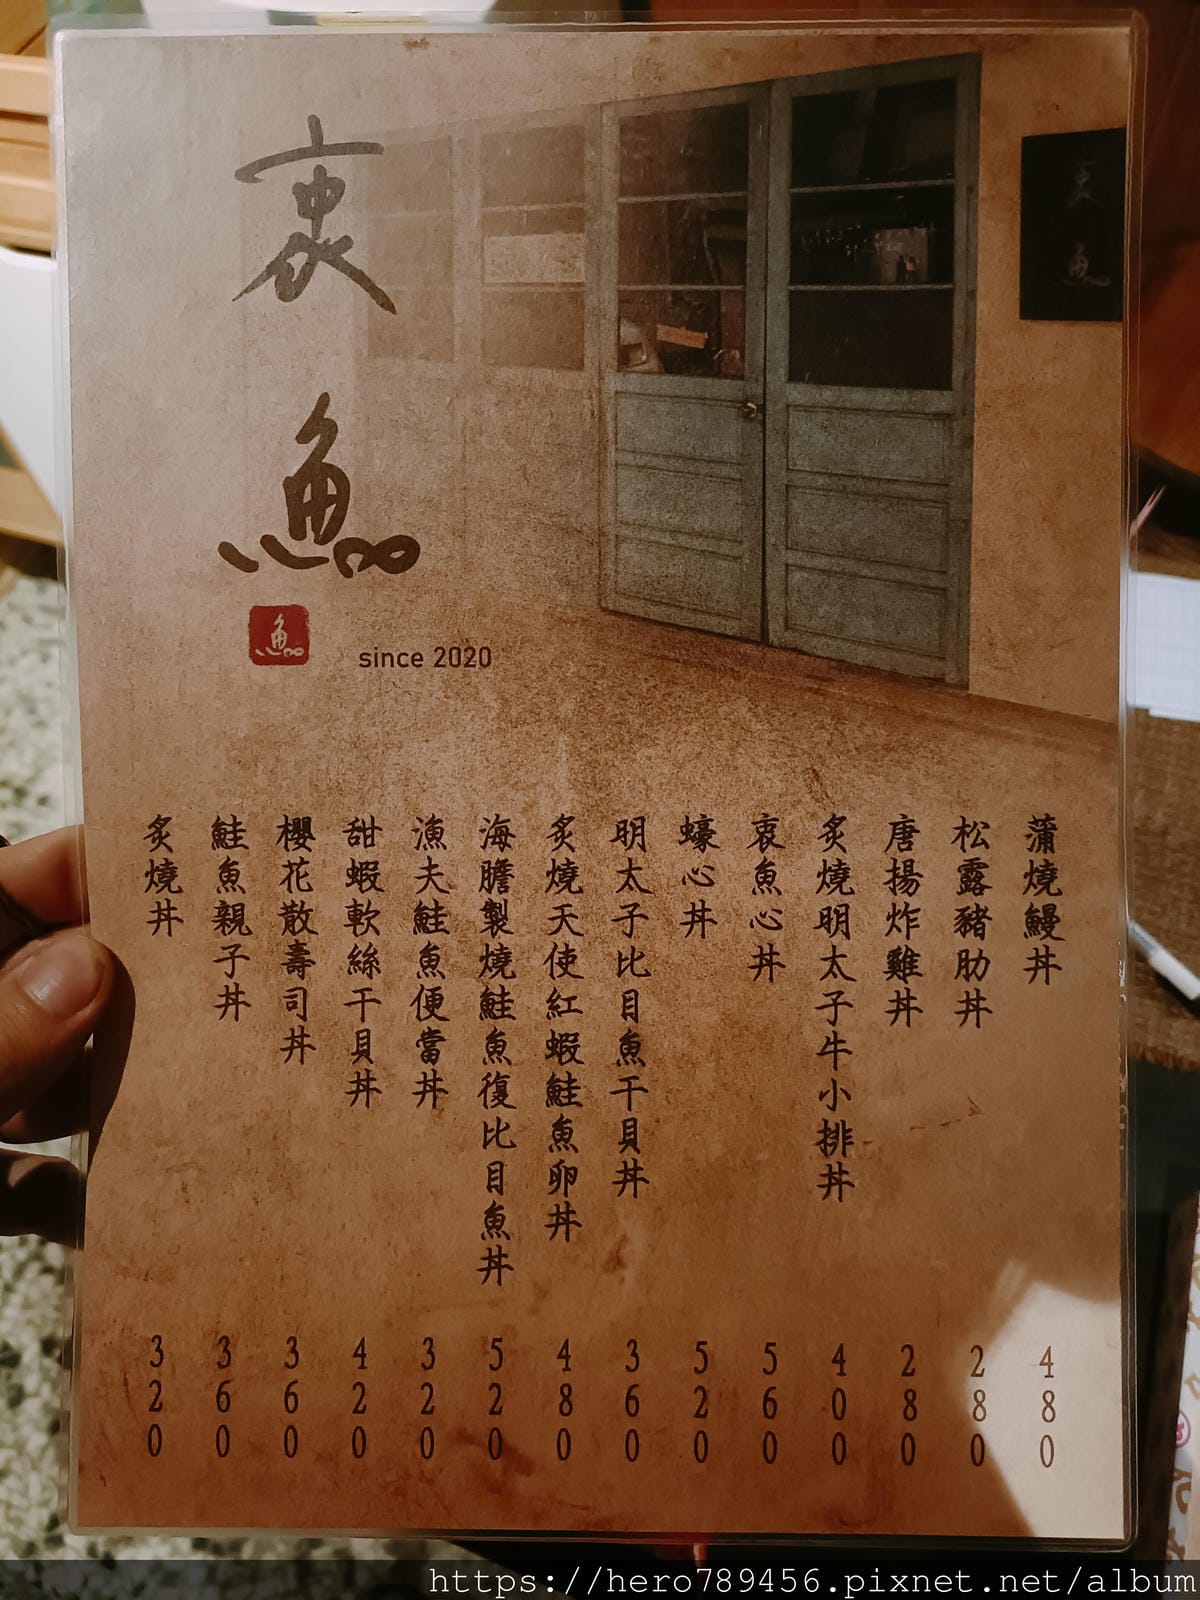 衷
魚
魚
since 2020
衷
魚
蒲燒鰻丼 480
松露豬肋丼 280
唐揚炸雞丼 280
炙燒明太子牛小排丼 400
衷魚心丼 560
蠔心丼 520
明太子比目魚干貝丼 360
炙燒天使紅蝦鮭魚卵丼 480
海膽製燒鮭魚復比目魚丼 520
漁夫鮭魚便當丼 320
甜蝦軟絲干貝丼 420
櫻花散壽司丼 360
鮭魚親子丼 360
炙燒丼 320
https://hero789456.pixnet.net/album